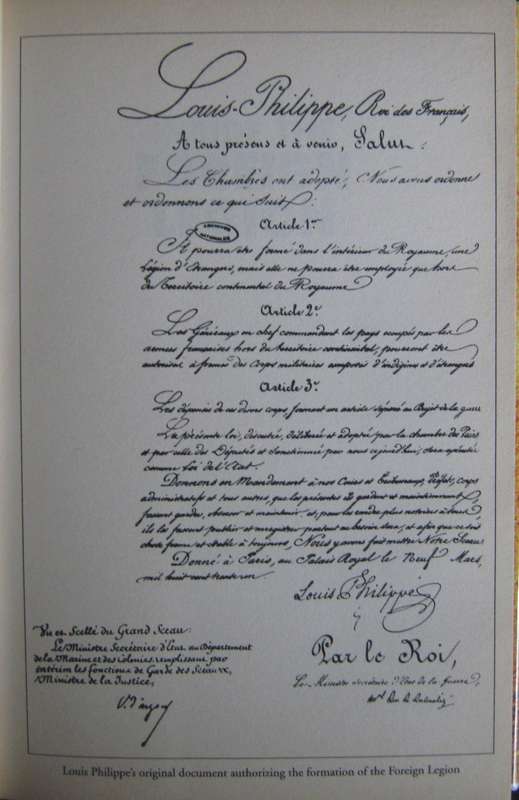 Louis-Philippe, Roi des Français,
A tous présens et à venir, Salut:
Les Chambres ont adopté, Nous avons ordonné
et ordonnons ce qui suit:
ARCHIVES
NATIONALES
Article 1er
Il pourra être formé dans l'intérieur du Royaume, une
Légion d'Etrangers, mais elle ne pourra être employée que hors
du Territoire continental du Royaume
Article 2e
Les Généraux en chef commandant les pays occupés par les
armées françaises hors du territoire continental, pourront être
autorisés à former des Corps militaires composés d'indigènes et d'étrangers
Article 3e
Les dépenses de ces divers corps forment un article séparé au Budjet de la guerre
La présente loi, discutée, délibérée et adoptée par la chambre des Pairs
et par celle des Députés et sanctionnée par nous cejourd'hui, sera exécutée
comme Loi de l'Etat.
Donnons en Mandement à nos Cours et Tribunaux, Préfets, corps
administratifs et tous autres, que les présentes ils gardent et maintiennent
fassent garder, observer et maintenir et, pour les rendre plus notoires à tous
ils les fassent publier et enregistrer partout où besoin sera, et afin que ce soit
chose ferme et stable à toujours, Nous y avons fait mettre Notre Sceau
Donné à Paris, au Palais Royal le Neuf Mars,
mil huit cent trente un
Louis Philippe
Vu et Scellé du Grand Sceau:
Le Ministre Secrétaire d'Etat au Département
de la Marine et des colonies remplissant par
intérim les fonctions de Garde des Sceaux,
Ministre de la Justice,
Par le Roi,
Le Ministre secrétaire d'Etat de la Guerre,
Louis Philippe's original document authorizing the formation of the Foreign Legion